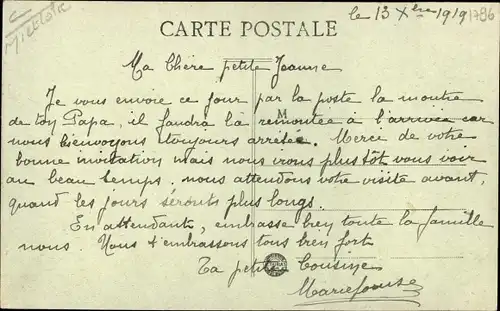 le 13 Xbre 1919
1786
CARTE POSTALE
Ma Chère petite Jeanne
Je vous envoie ce jour par la poste la montre
de ton Papa, il faudra la remontée à l'arrivée car
nous l'envoyons toujours arrêtée. Merci de votre
bonne invitation mais nous irons plus tôt vous voir
au beau temps, nous attendons votre visite avant,
quand les jours seronts plus longs.
En attendant, embrasse bien toute la famille
nous. Nous t'embrassons tous bien fort
Ta petite Cousine
Marie Louise